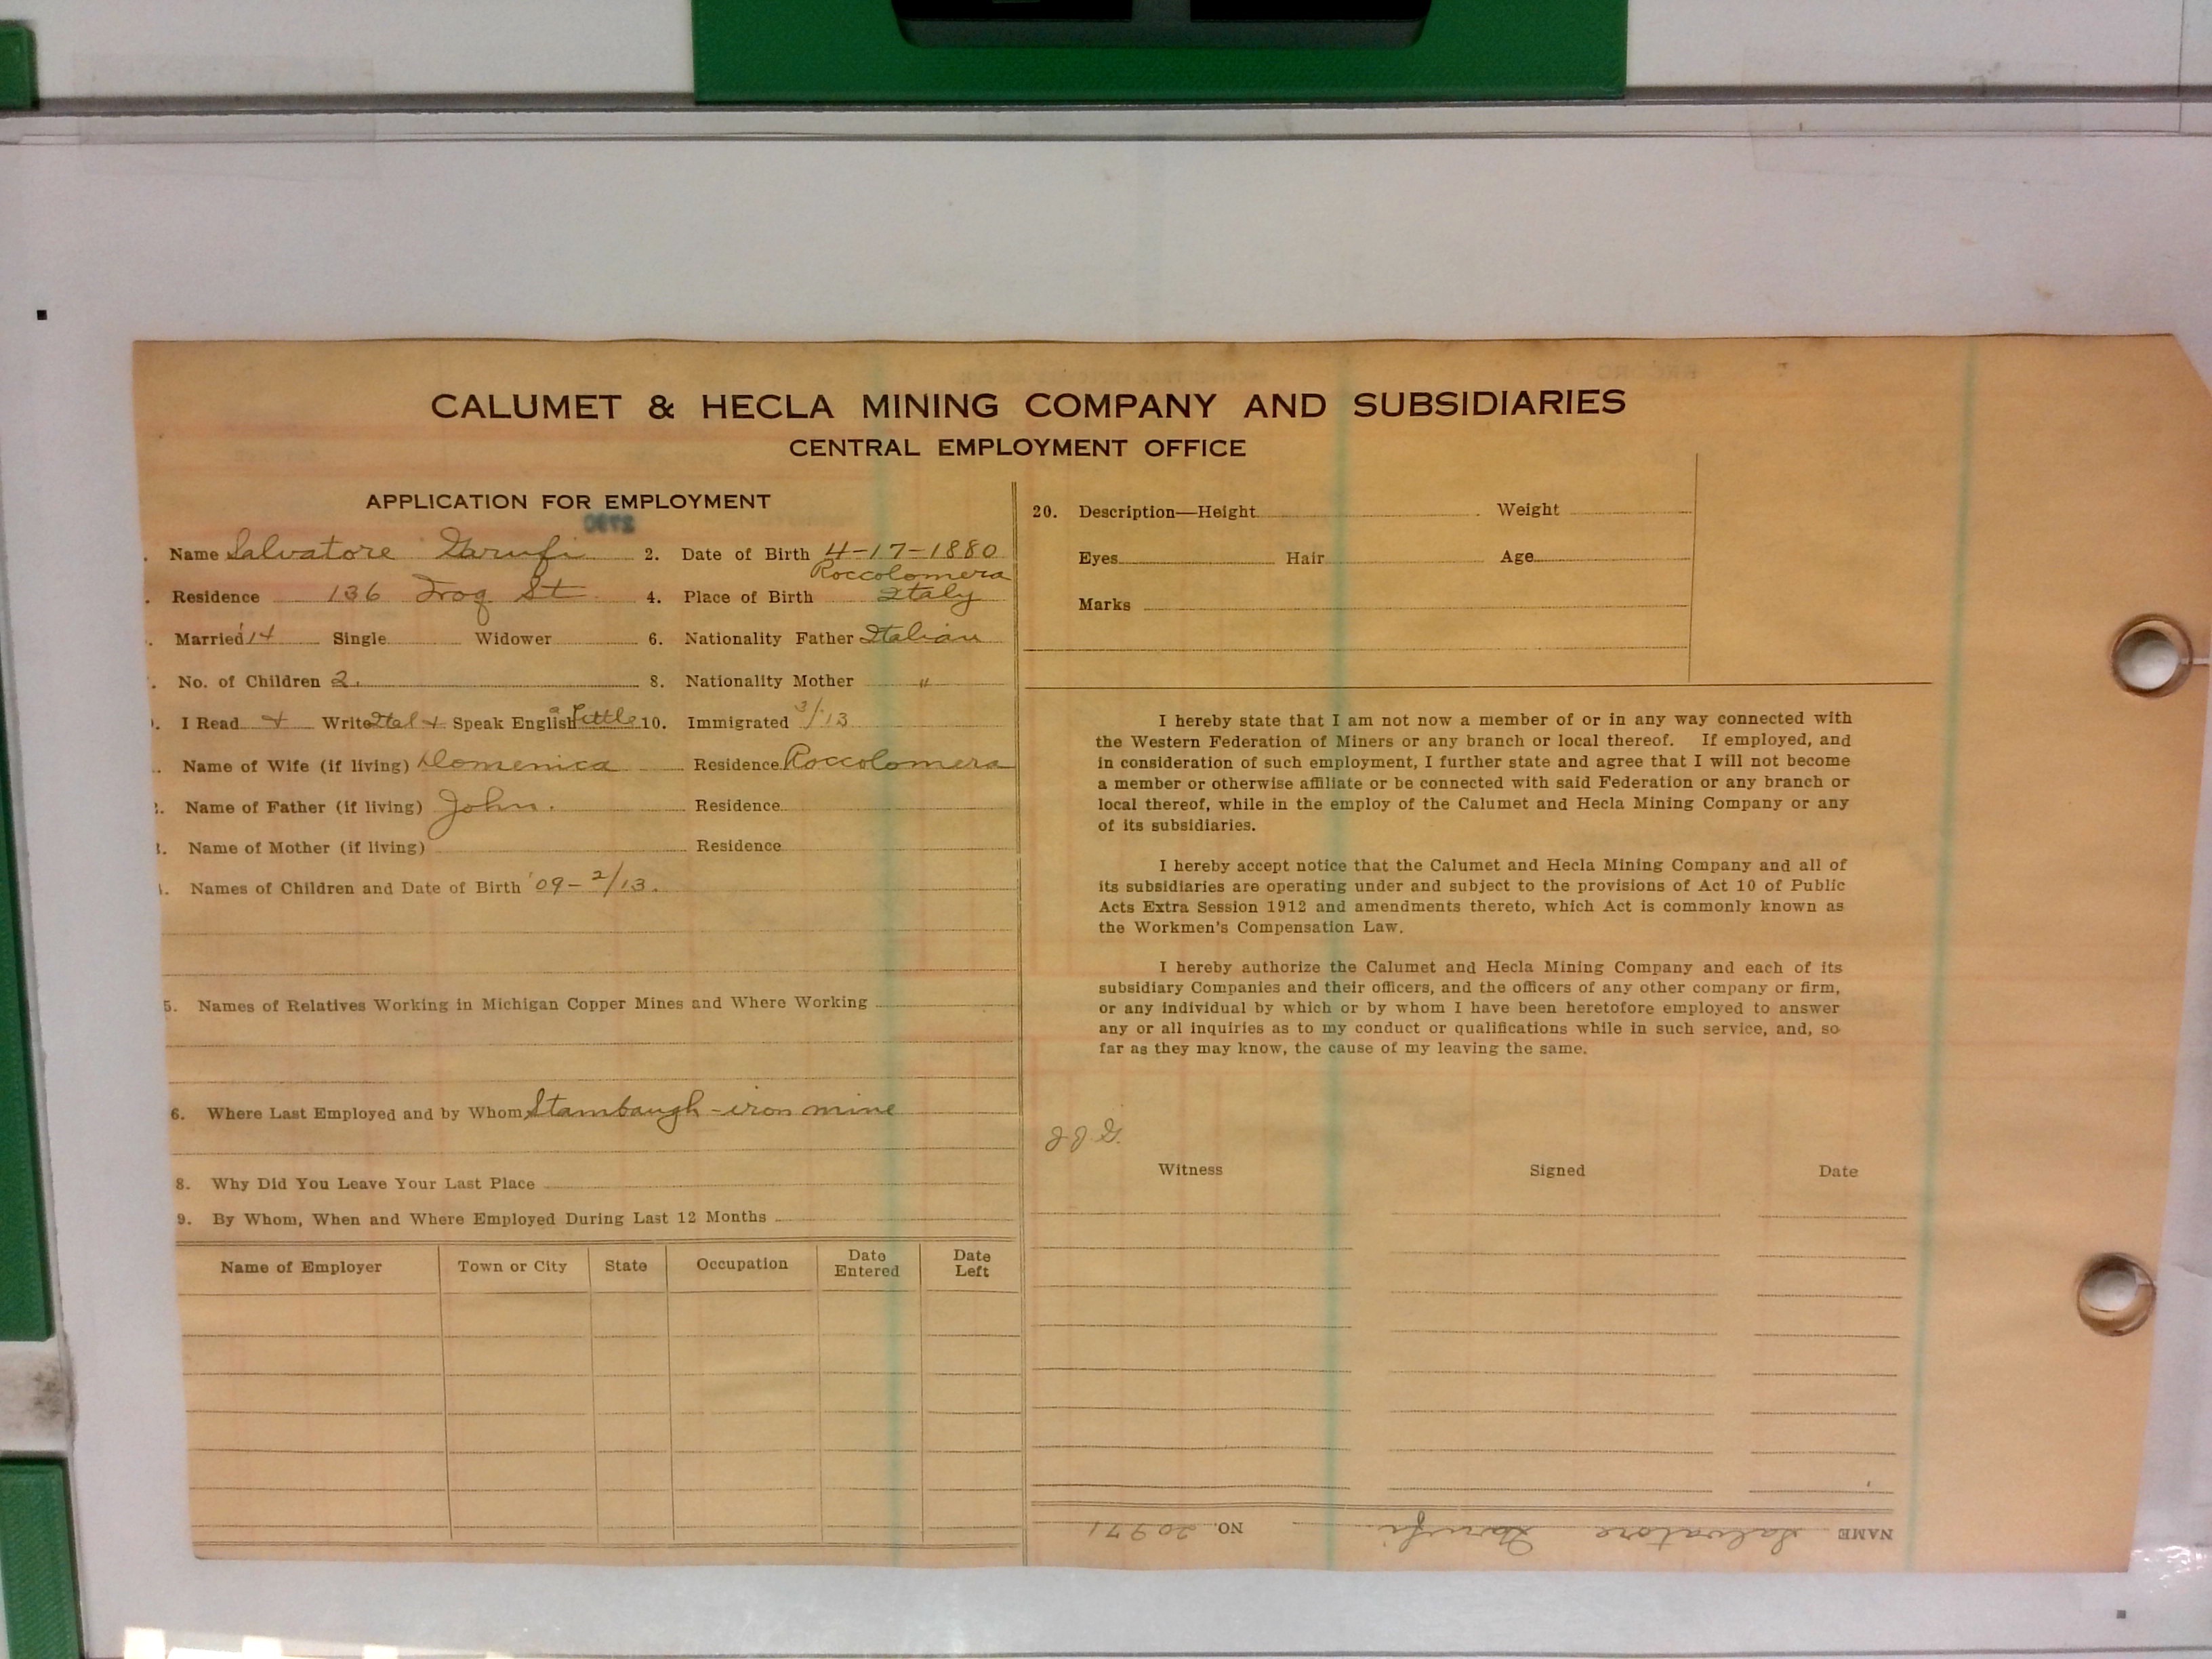 CALUMET & HECLA MINING COMPANY AND SUBSIDIARIES
CENTRAL EMPLOYMENT OFFICE
APPLICATION FOR EMPLOYMENT
. Name Salvatore Garufi 2. Date of Birth 4-17-1880
. Residence 136 Frog St 4. Place of Birth Roccolomera Italy
. Married '14 Single Widower 6. Nationality Father Italian
. No. of Children 2. 8. Nationality Mother "
. I Read + Write Ital + Speak English a little 10. Immigrated 3/13
. Name of Wife (if living) Domenica Residence Roccolomera
. Name of Father (if living) John. Residence
. Name of Mother (if living) Residence
. Names of Children and Date of Birth '09 - 2/13.
5. Names of Relatives Working in Michigan Copper Mines and Where Working
6. Where Last Employed and by Whom Stambaugh - iron mine
8. Why Did You Leave Your Last Place
9. By Whom, When and Where Employed During Last 12 Months
Name of Employer Town or City State Occupation Date Entered Date Left
20. Description—Height Weight
Eyes Hair Age
Marks
I hereby state that I am not now a member of or in any way connected with
the Western Federation of Miners or any branch or local thereof. If employed, and
in consideration of such employment, I further state and agree that I will not become
a member or otherwise affiliate or be connected with said Federation or any branch or
local thereof, while in the employ of the Calumet and Hecla Mining Company or any
of its subsidiaries.
I hereby accept notice that the Calumet and Hecla Mining Company and all of
its subsidiaries are operating under and subject to the provisions of Act 10 of Public
Acts Extra Session 1912 and amendments thereto, which Act is commonly known as
the Workmen's Compensation Law.
I hereby authorize the Calumet and Hecla Mining Company and each of its
subsidiary Companies and their officers, and the officers of any other company or firm,
or any individual by which or by whom I have been heretofore employed to answer
any or all inquiries as to my conduct or qualifications while in such service, and, so
far as they may know, the cause of my leaving the same.
J J G.
Witness Signed Date
NAME Salvatore Garufi NO. 20971